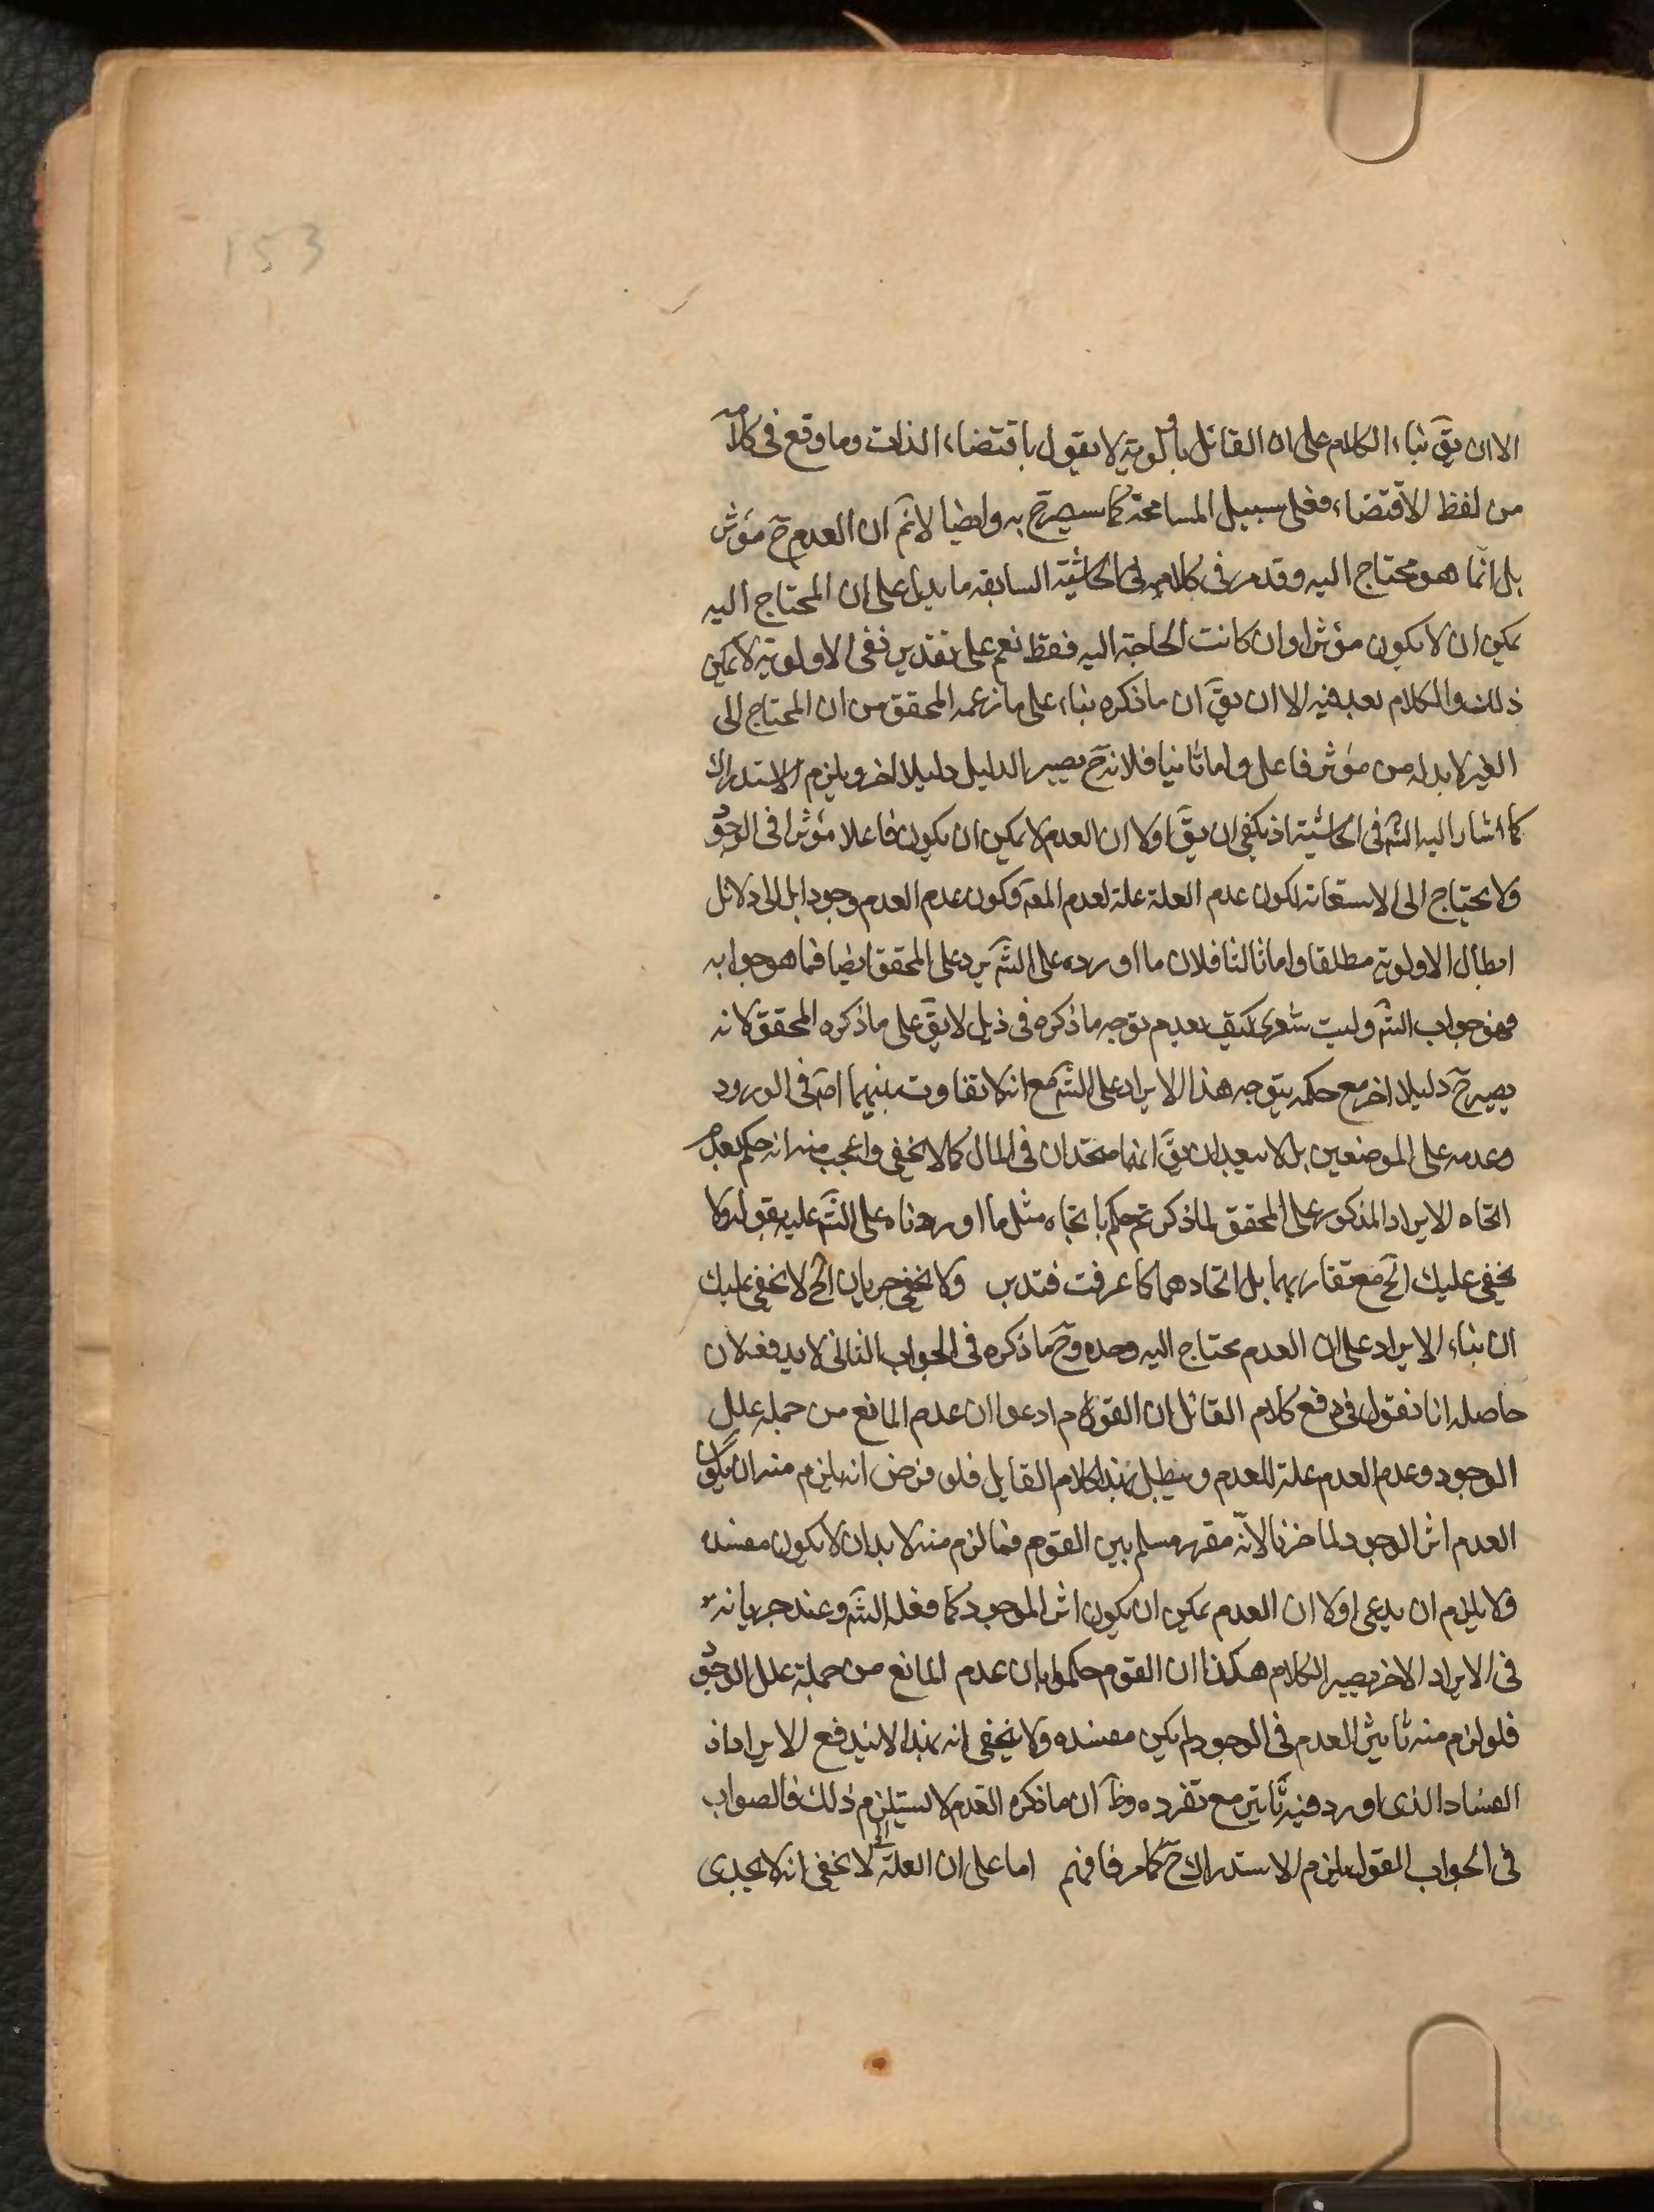 153
الا ان یقَ بناء الکلام علی ان القائل بالاولویة لا یقول باقتضاء الذات وما وقع فی کلامه
من لفظ الاقتضاء فعلی سبیل المسامحة کما سیصرح به وایضا لانمَ ان العدم حَ مؤثر
بل انما هو محتاج الیه وقد مر فی کلامه فی الحاشیة السابقه ما یدل علی ان المحتاج الیه
یمکن ان لا یکون مؤثرا وان کانت الحاجة الیه فقط نعم علی تقدیر نفی الاولویة لا یمکن
ذلک والکلام بعد فیه الا ان یقَ ان ما ذکره بناء علی ما زعمه المحقق من ان المحتاج الی
الغیر لا بد له من مؤثر فاعل واما ثانیا فلانه حَ یصیر الدلیل دلیلا اخر ویلزم الاستدراک
کما اشار الیه الشَ فی الحاشیة اذ یکفی ان یقَ اولا ان العدم لا یمکن ان یکون فاعلا مؤثرا فی الوجود
ولا یحتاج الی الاستعانة لکون عدم العلة علة لعدم المعَ وکون عدم العدم وجودا بل الی دلائل
ابطال الاولویة مطلقا واما ثالثا فلان ما اورده علی الشَ یرد علی المحقق ایضا فما هو جوابه
فهو جواب الشَ ولیت شعری کیف بعدم توجه ما ذکره فی ذیل لا یقَ علی ما ذکره المحقق لانه
یصیر حَ دلیلا اخر مع حکمه بتوجه هذا الایراد علی الشَ مع انه لا تفاوت بینهما اصَ فی الورود
وعدمه علی الموضعین بل لا یبعد ان یقَ انهما متحدان فی المال کما لا یخفی واعجب منه انه حکم بعدم
اتجاه الایراد المذکور علی المحقق لما ذکر ثم حکم باتجاه مثل ما اوردناه علی الشَ علیه بقوله ولا
یخفی علیک الخَ مع تقاربهما بل اتحادهما کما عرفت فتدبر ولا یخفی جریان الخ لا یخفی علیک
ان بناء الایراد علی ان العدم محتاج الیه وحده وحَ ما ذکره فی الجواب الثانی لا یدفعه لان
حاصله انا نقول فی دفع کلام القائل ان القوم ادعوا ان عدم المانع من جمله علل
الوجود وعدم العدم علة للعدم ویبطل بهذا کلام القایل فلو فرض انه یلزم منه ان یکون
العدم اثر الوجود لما ضرنا لانه مقرر مسلم بین القوم فما لزم منه لا بد ان لا یکون مفسده
ولا یلزم ان یدعی اولا ان العدم یمکن ان یکون اثر الموجود کما فعله الشَ وعند جریانه
فی الایراد الاخر یصیر الکلام هکذا ان القوم حکموا بان عدم المانع من جملة علل الوجود
فلو لزم منه تاثیر العدم فی الوجود لم یکن مفسده ولا یخفی انه بهذا لا یندفع الایراد اذ
الفساد الذی اورد فیه تاثیره مع تفرده وظَ ان ما ذکره القدم لا یستلزم ذلک فالصواب
فی الجواب القول بلزوم الاستدراک حَ کما مر فافهم اما علی ان العلة الخ لا یخفی انه لا یجدی